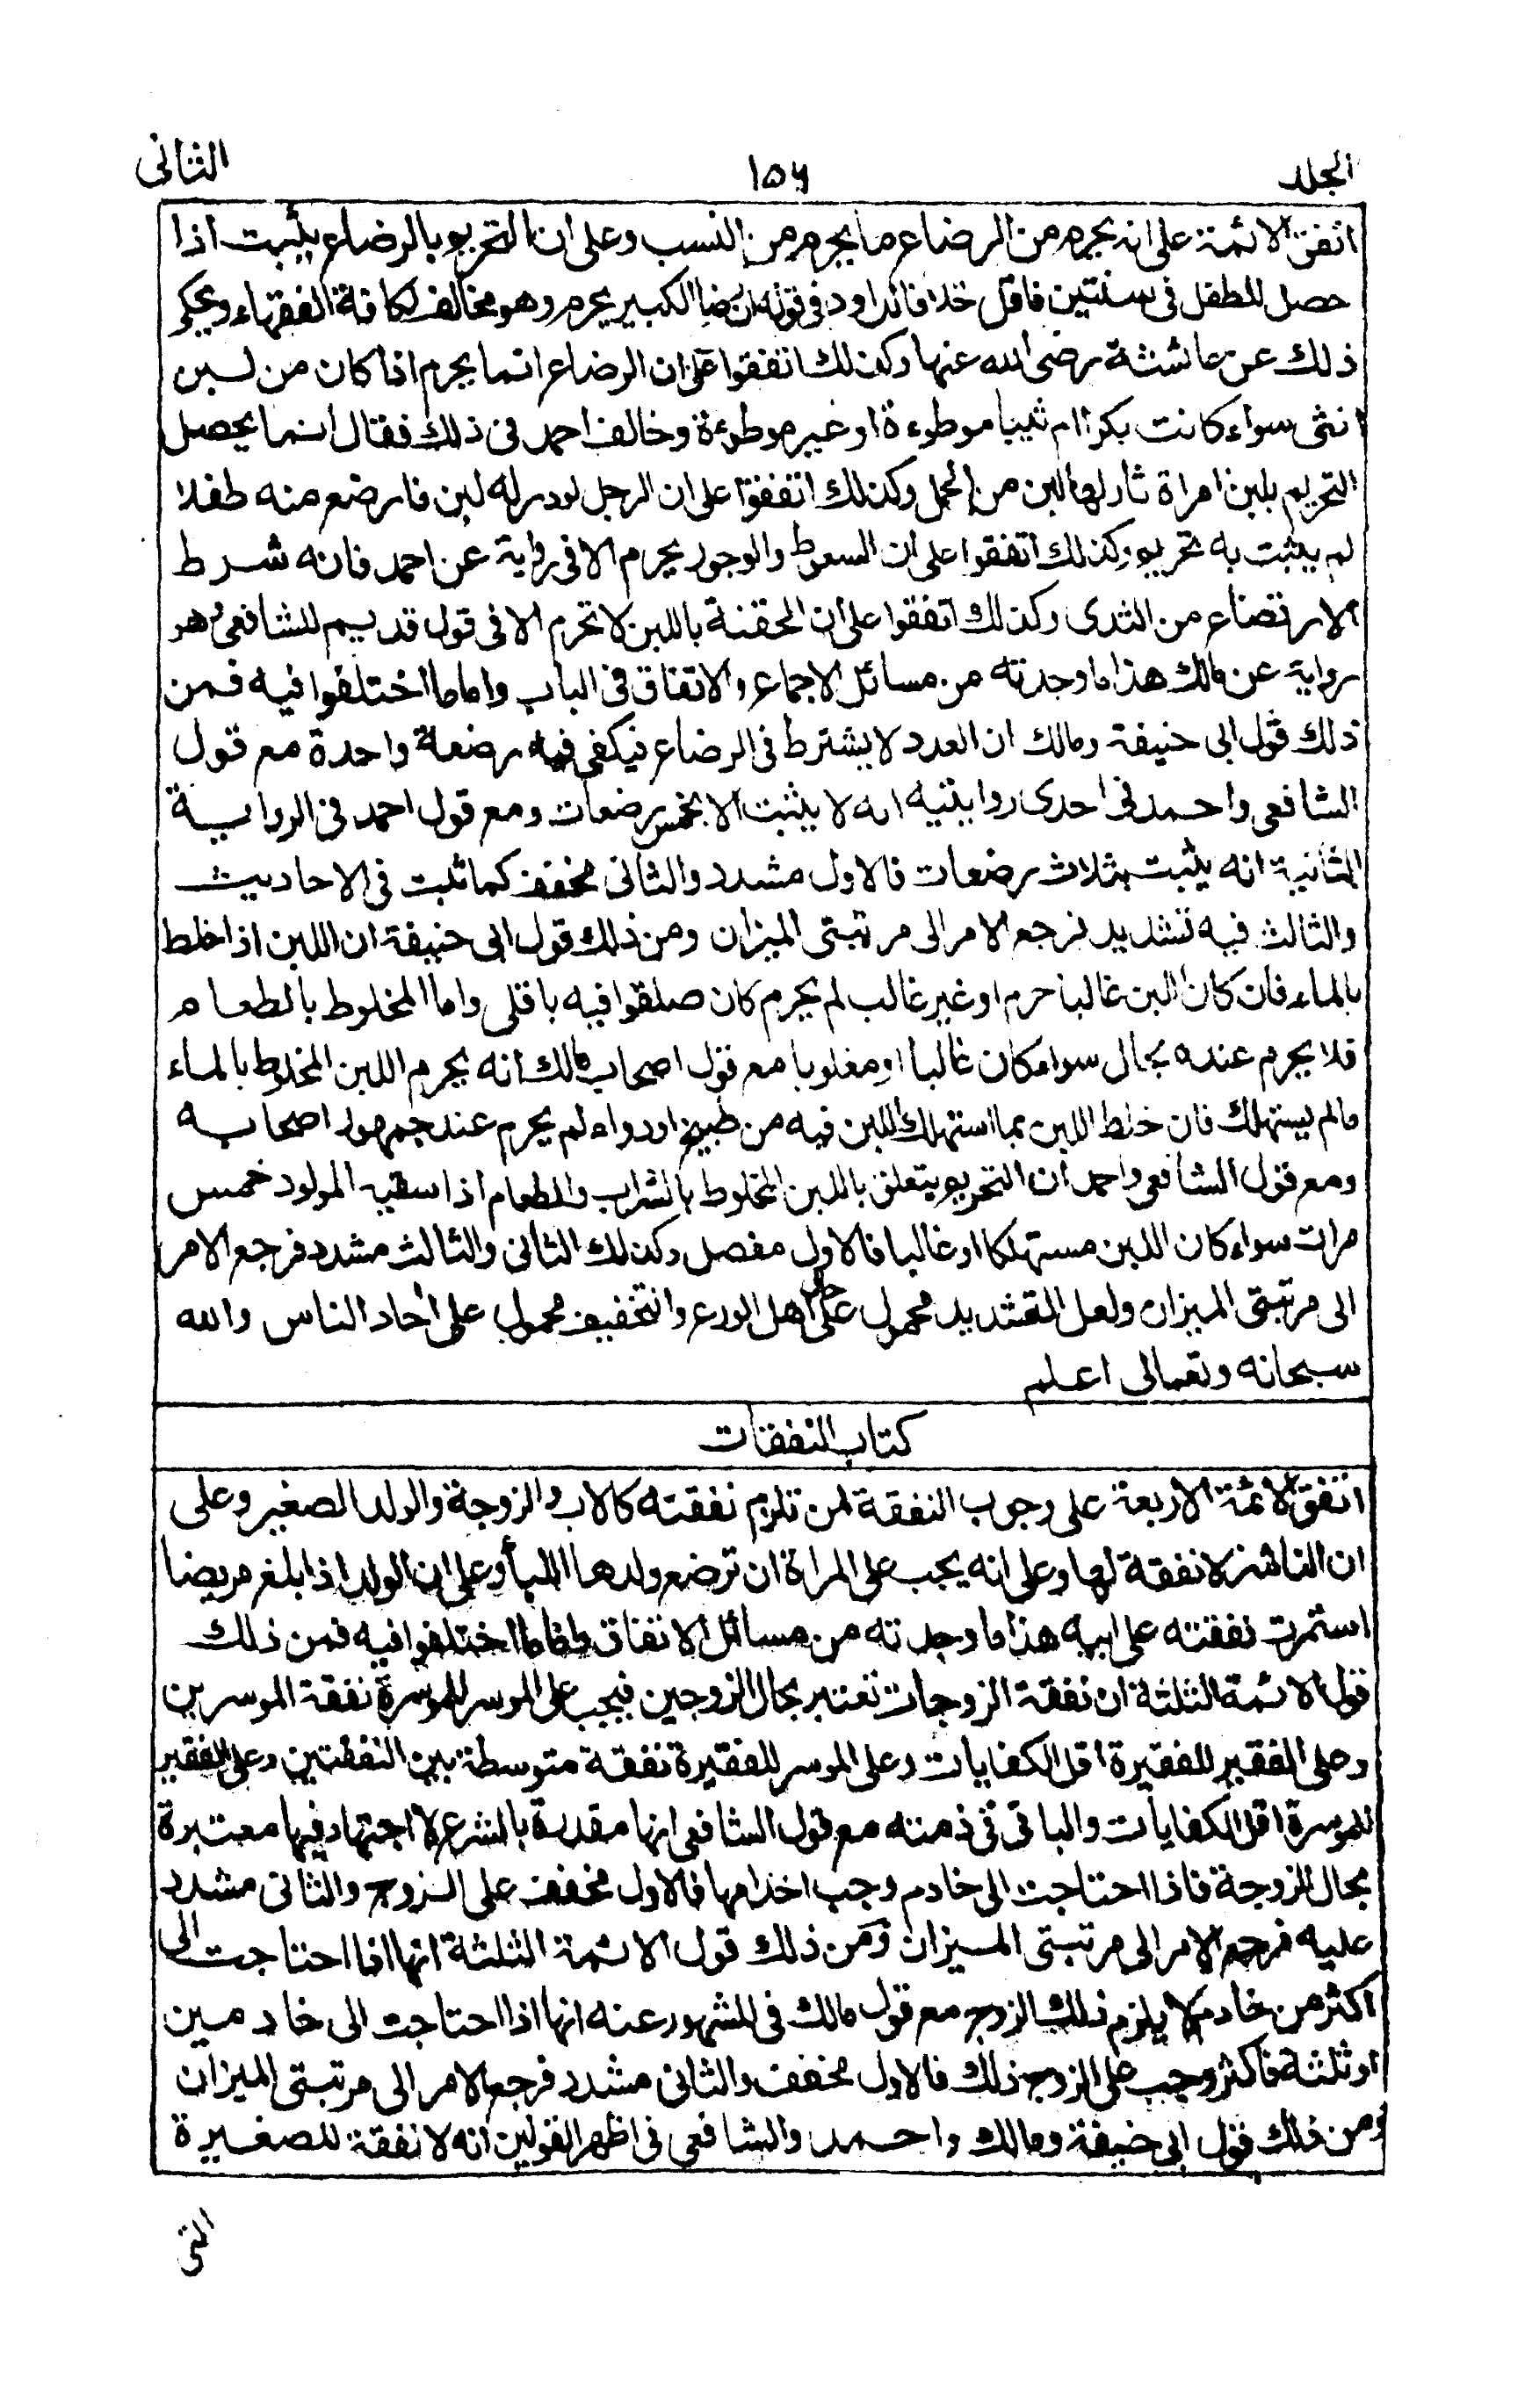 الجلد ١٥٦ الثانى
اتفق الائمة على انه يحرم من الرضاع ما يحرم من النسب وعلى ان التحريم بالرضاع يثبت اذا
حصل للطفل فى سنتين فاقل خلافا لداود فى قوله ان رضاع الكبير يحرم وهو مخالف لكافة الفقهاء ويحكى
ذلك عن عائشة رضى الله عنها وكذلك اتفقوا على ان الرضاع انما يحرم اذا كان من لبن
انثى سواء كانت بكرا ام ثيبا موطوءة او غير موطوءة وخالف احمد فى ذلك فقال انما يحصل
التحريم بلبن امراة ثار لها لبن من الحمل وكذلك اتفقوا على ان الرجل لو در له لبن فارضع منه طفلا
لم يثبت به تحريم وكذلك اتفقوا على ان السعوط والوجور يحرم الا فى رواية عن احمد فانه شرط
الارتضاع من الثدى وكذلك اتفقوا على ان الحقنة باللبن لا تحرم الا فى قول قديم للشافعى وهو
رواية عن مالك هذا ما وجدته من مسائل الاجماع والاتفاق فى الباب واما ما اختلفوا فيه فمن
ذلك قول ابى حنيفة ومالك ان العدد لا يشترط فى الرضاع فيكفى فيه رضعة واحدة مع قول
الشافعى واحمد فى احدى روايتيه انه لا يثبت الا بخمس رضعات ومع قول احمد فى الرواية
الثانية انه يثبت بثلاث رضعات فالاول مشدد والثانى مخفف كما ثبت فى الاحاديث
والثالث فيه تشديد فرجع الامر الى مرتبتى الميزان ومن ذلك قول ابى حنيفة ان اللبن اذا خلط
بالماء فان كان اللبن غالبا حرم او غير غالب لم يحرم كان صلقوا فيه باقلى واما المخلوط بالطعام
فلا يحرم عنده بحال سواء كان غالبا او مغلوبا مع قول اصحاب مالك انه يحرم اللبن المخلوط بالماء
ما لم يستهلك فان خلط اللبن بما استهلك اللبن فيه من طبيخ او دواء لم يحرم عند جمهور اصحابه
ومع قول الشافعى واحمد ان التحريم يتعلق باللبن المخلوط بالشراب والطعام اذا سقيه المولود خمس
مرات سواء كان اللبن مستهلكا او غالبا فالاول مفصل وكذلك الثانى والثالث مشدد فرجع الامر
الى مرتبتى الميزان ولعل التشديد محمول على حال اهل الورع والتخفيف محمول على احاد الناس والله
سبحانه وتعالى اعلم
كتاب النفقات
اتفق الائمة الاربعة على وجوب النفقة لمن تلزم نفقته كالاب والزوجة والولد الصغير وعلى
ان الناشز لا نفقة لها وعلى انه يجب على المراة ان ترضع ولدها اللبأ وعلى ان الولد اذا بلغ مريضا
استمرت نفقته على ابيه هذا ما وجدته من مسائل الاتفاق واما ما اختلفوا فيه فمن ذلك
قول الائمة الثلثة ان نفقة الزوجات تعتبر بحال الزوجين فيجب على الموسر للموسرة نفقة الموسرين
وعلى الفقير للفقيرة اقل الكفايات وعلى الموسر للفقيرة نفقة متوسطة بين النفقتين وعلى الفقير
للموسرة اقل الكفايات والباقى فى ذمته مع قول الشافعى انها مقدرة بالشرع لا اجتهاد فيها معتبرة
بحال الزوجة فاذا احتاجت الى خادم وجب اخدامها فالاول مخفف على الزوج والثانى مشدد
عليه فرجع الامر الى مرتبتى الميزان ومن ذلك قول الائمة الثلثة انها اذا احتاجت الى
اكثر من خادم لا يلزم ذلك الزوج مع قول مالك فى المشهور عنه انها اذا احتاجت الى خادمين
او ثلثة فاكثر وجب على الزوج ذلك فالاول مخفف والثانى مشدد فرجع الامر الى مرتبتى الميزان
ومن ذلك قول ابى حنيفة ومالك واحمد والشافعى فى اظهر القولين انه لا نفقة للصغيرة
التى